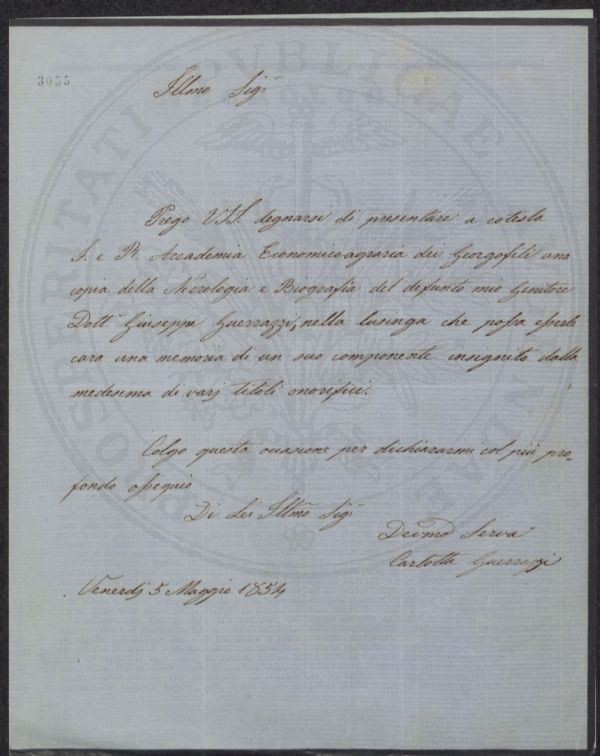 3055
Illmo Sigr
Prego V.S.I. degnarsi di presentare a cotesta
I. e R. Accademia Economico-agraria dei Georgofili una
copia della Necrologia e Biografia del defunto mio Genitore
Dott. Giuseppe Guerrazzi, nella lusinga che possa esserle
cara una memoria di un suo componente insignito dalla
medesima di varj titoli onorifici.
Colgo questa occasione per dichiararmi col più pro=
fondo ossequio
Di Lei Illmo Sigr
Devma Serva
Carlotta Guerrazzi
Venerdj 5 Maggio 1854
PROSPERITATI PUBLICAE AUGENDAE